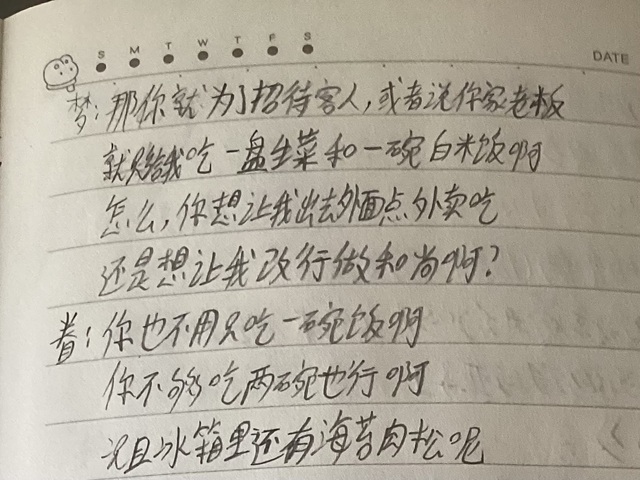 S M T W T F S
DATE
梦：那你就为了招待客人，或者说你家老板
就只给我吃一盘生菜和一碗白米饭啊
怎么，你想让我出去外面点外卖吃
还是想让我改行做和尚啊？
眷：你也不用只吃一碗饭啊
你不够吃两碗也行啊
况且冰箱里还有海苔肉松呢